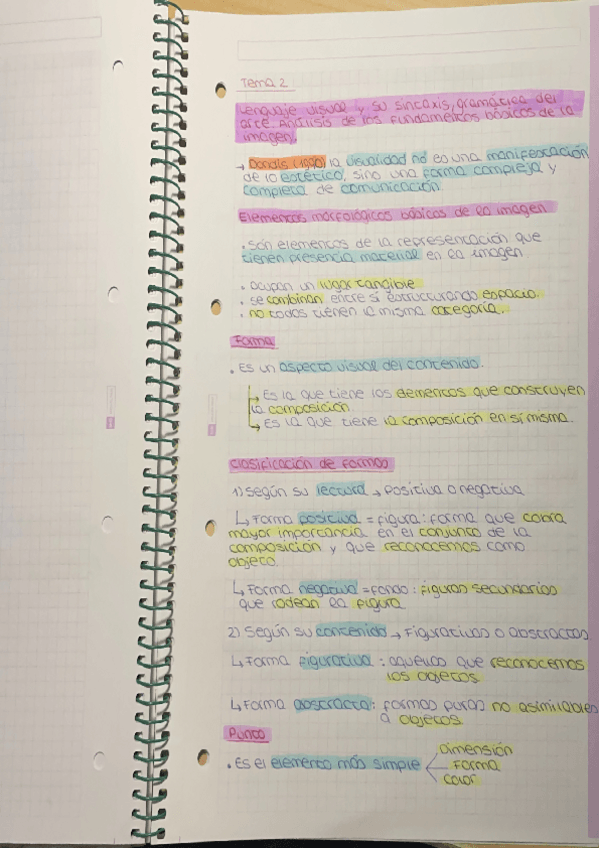 Tema 2
Lenguaje visual y su sintaxis, gramática del
arte. Análisis de los fundamentos básicos de la
imagen.
→ Dondis (1990) la visualidad no es una manifestación
de lo estético, sino una forma compleja y
completa de comunicación.
Elementos morfológicos básicos de la imagen
• Son elementos de la representación que
tienen presencia material en la imagen.
• Ocupan un lugar tangible.
• se combinan entre sí estructurando espacio.
• no todos tienen la misma categoría.
Forma
• Es un aspecto visual del contenido.
↳ Es la que tiene los elementos que construyen
la composición.
↳ Es la que tiene la composición en sí misma.
Clasificación de formas
1) Según su lectura → Positiva o negativa
↳ Forma positiva = figura: forma que cobra
mayor importancia en el conjunto de la
composición y que reconocemos como
objeto.
↳ Forma negativa = fondo: figuras secundarias
que rodean la figura
2) Según su contenido → Figurativas o abstractas
↳ Forma figurativa: aquellas que reconocemos
los objetos
↳ Forma abstracta: formas puras no asimilables
a objetos.
Punto
• Es el elemento más simple
Dimensión
Forma
Color